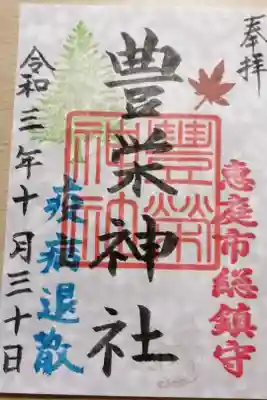 奉拝
恵庭市総鎮守
豊栄神社
豐榮神社
疫病退散
令和三年十月三十日